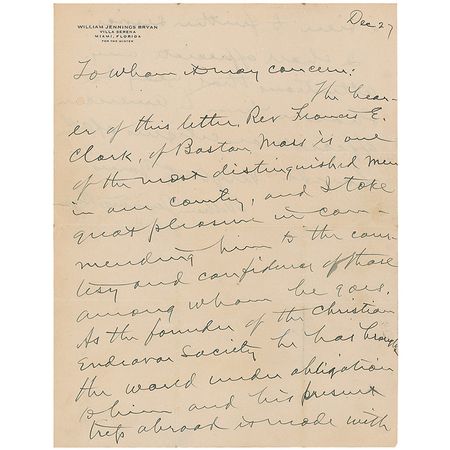 Dec 27
WILLIAM JENNINGS BRYAN
VILLA SERENA
MIAMI, FLORIDA
FOR THE WINTER
To whom it may concern:
The bear-
er of this letter, Rev Francis E.
Clark, of Boston Mass is one
of the most distinguished men
in our country, and I take
great pleasure in com-
mending him to the cour-
tesy and confidence of those
among whom he goes.
As the founder of the Christian
Endeavor Society he has brought
the world under obligation
to him and his present
trip abroad is made with